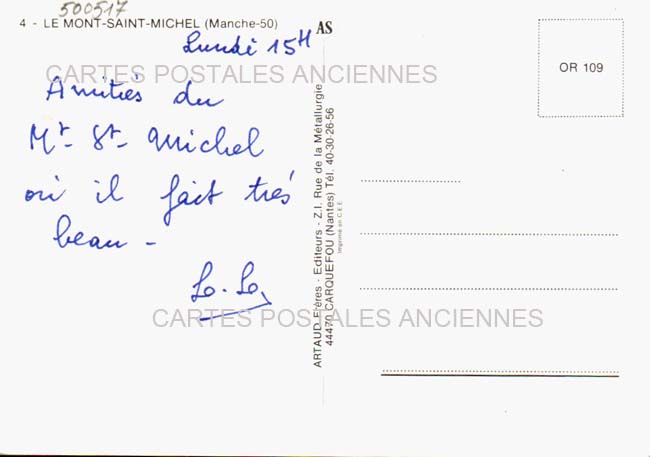 500517
4 - LE MONT-SAINT-MICHEL (Manche-50)
AS
Lundi 15H
CARTES POSTALES ANCIENNES
Amitiés du
Mt- St- Michel
où il fait très
beau -
CARTES POSTALES ANCIENNES
ARTAUD Frères - Editeurs - Z.I. Rue de la Métallurgie
44470 CARQUEFOU (Nantes) Tél. 40-30-26-56
Imprimé en C.E.E.
OR 109